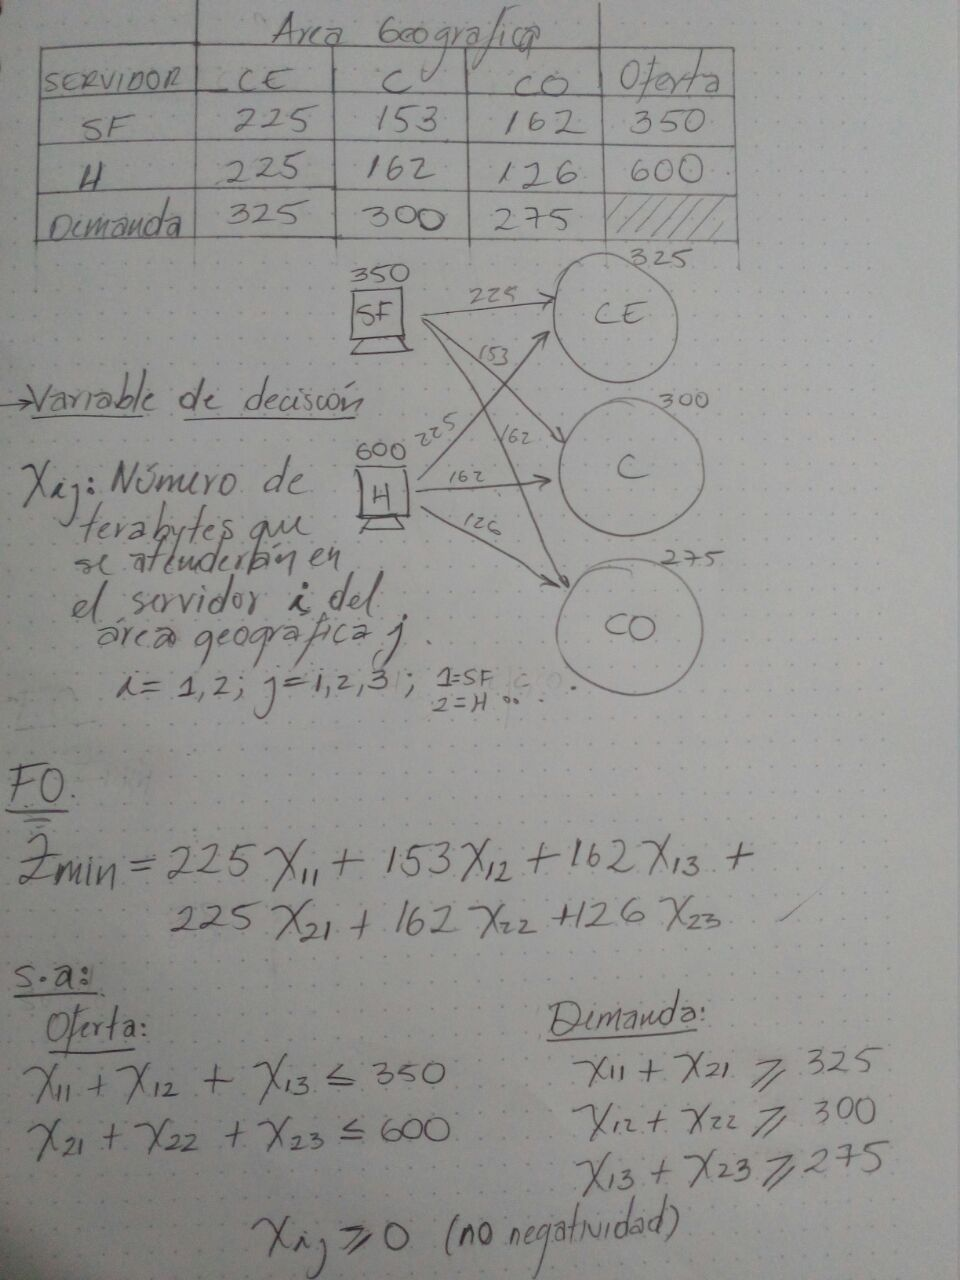 Area Geografica
SERVIDOR CE C CO Oferta
SF 225 153 162 350
H 225 162 126 600
Dimanda 325 300 275
350
SF
225
325
CE
153
→ Variable de decisión
300
225
162
600
H
162
C
126
275
CO
Xij: Número de
terabytes que
se atenderán en
el servidor i del
área geografica j.
i = 1,2; j = 1,2,3; 1=SF
2=H
FO.
Zmin = 225 X11 + 153 X12 + 162 X13 +
225 X21 + 162 X22 + 126 X23
s.a:
Oferta:
X11 + X12 + X13 ≤ 350
X21 + X22 + X23 ≤ 600
Dimanda:
X11 + X21 ≥ 325
X12 + X22 ≥ 300
X13 + X23 ≥ 275
Xij ≥ 0 (no negatividad)